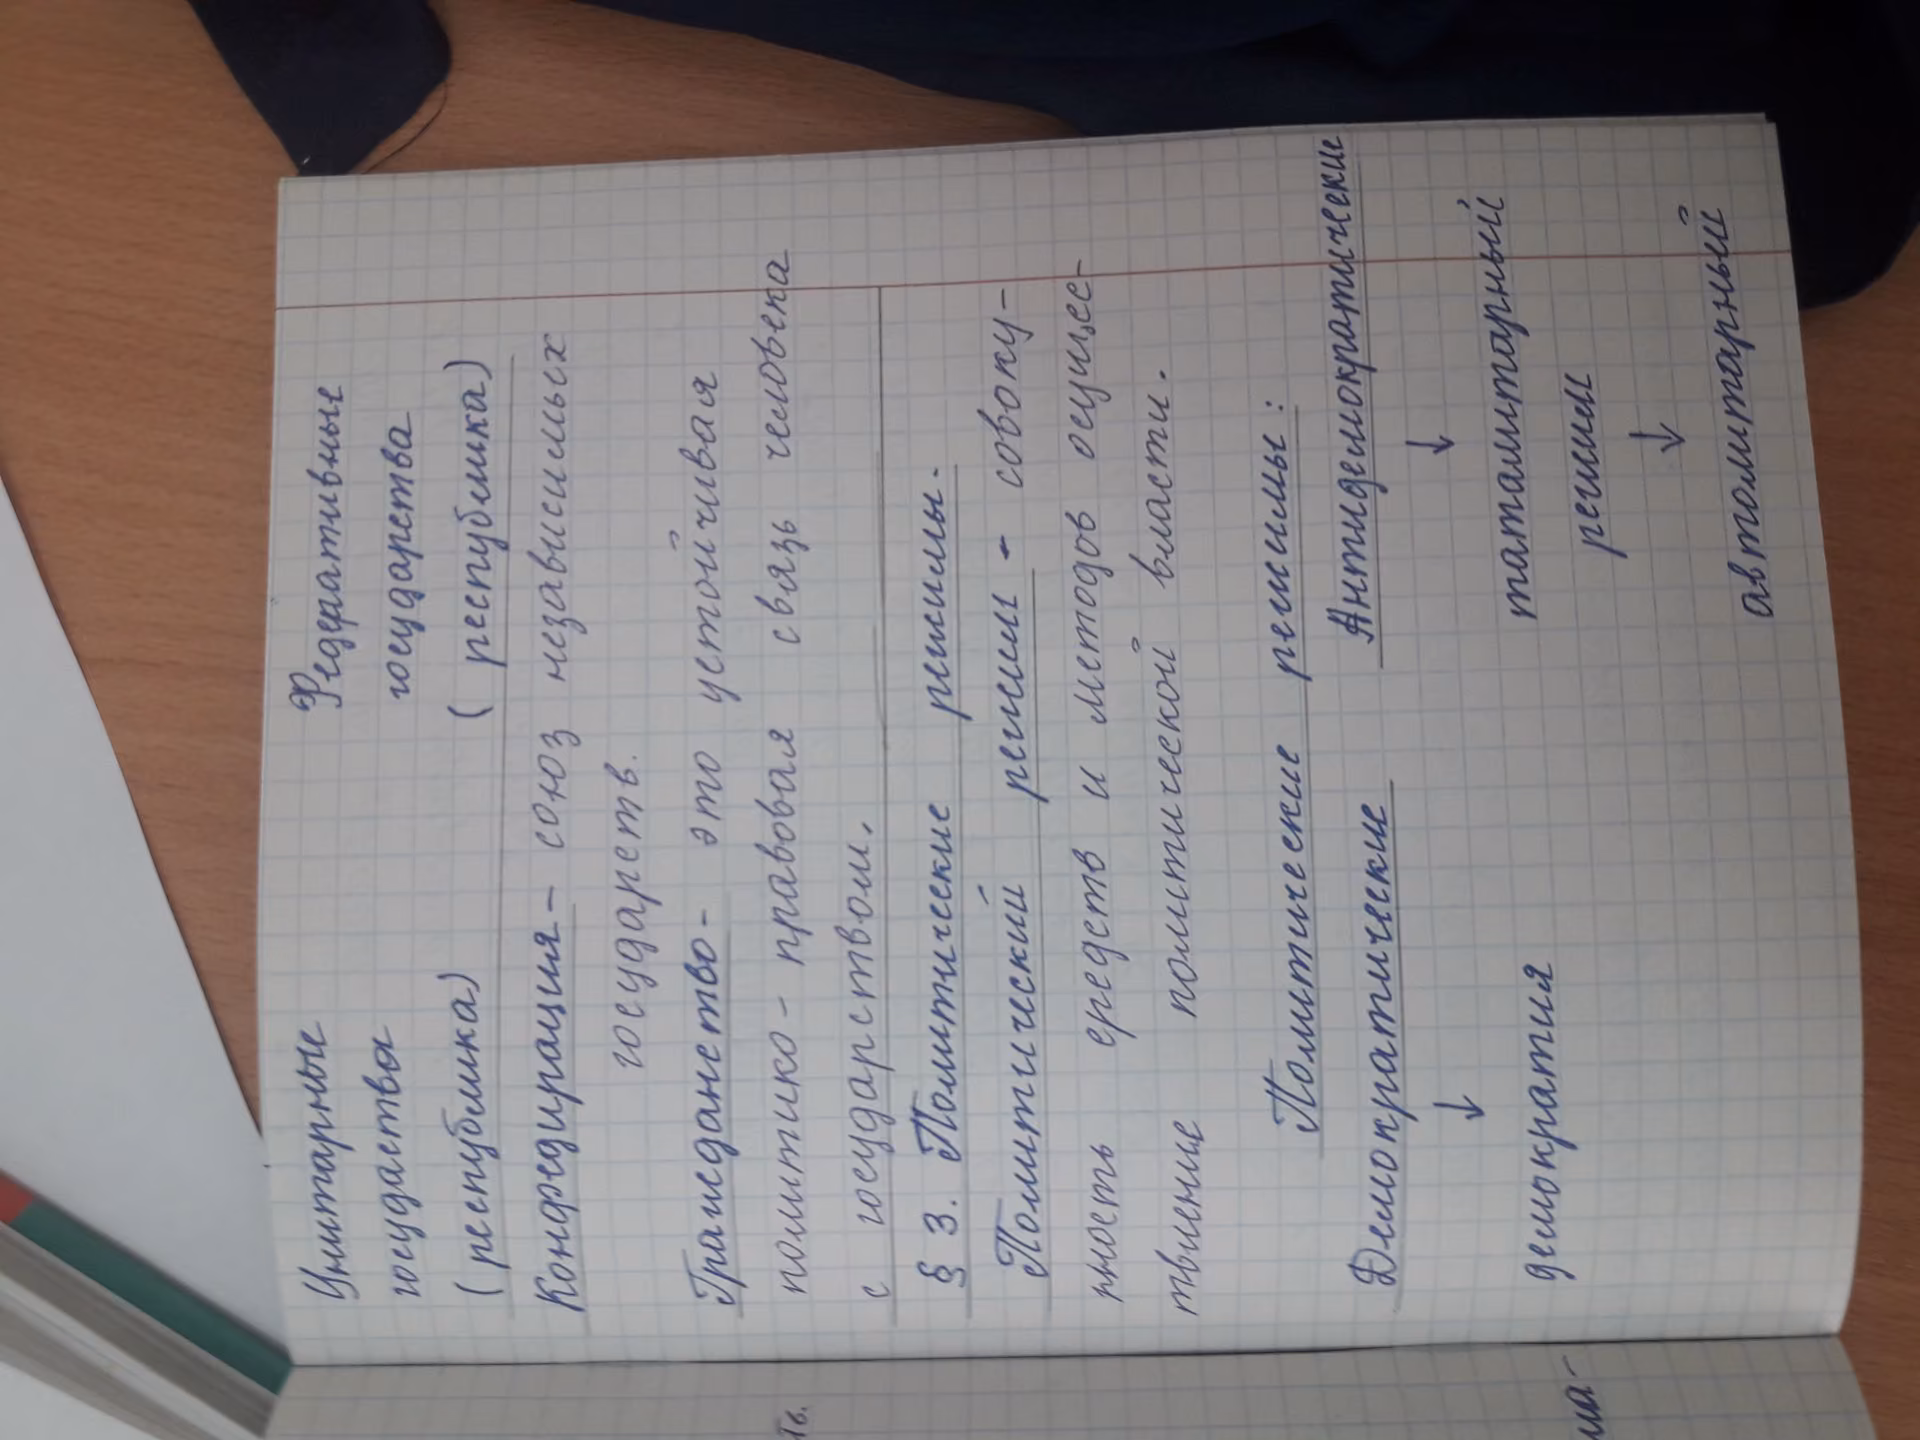 Унитарные Федеративные
госудаства государства
(республика) (республика)
Конфедирация - союз независимых
государств.
Гражданство - это устойчивая
политико - правовая связь человека
с государством.
§ 3. Политические режимы.
Политический режим - совоку-
пность средств и методов осущес-
твление политической власти.
Политические режимы:
Демократические Антидемократические
↓ ↓
демократия таталитарный
режим
↓
автолитарный
ть.
ма-